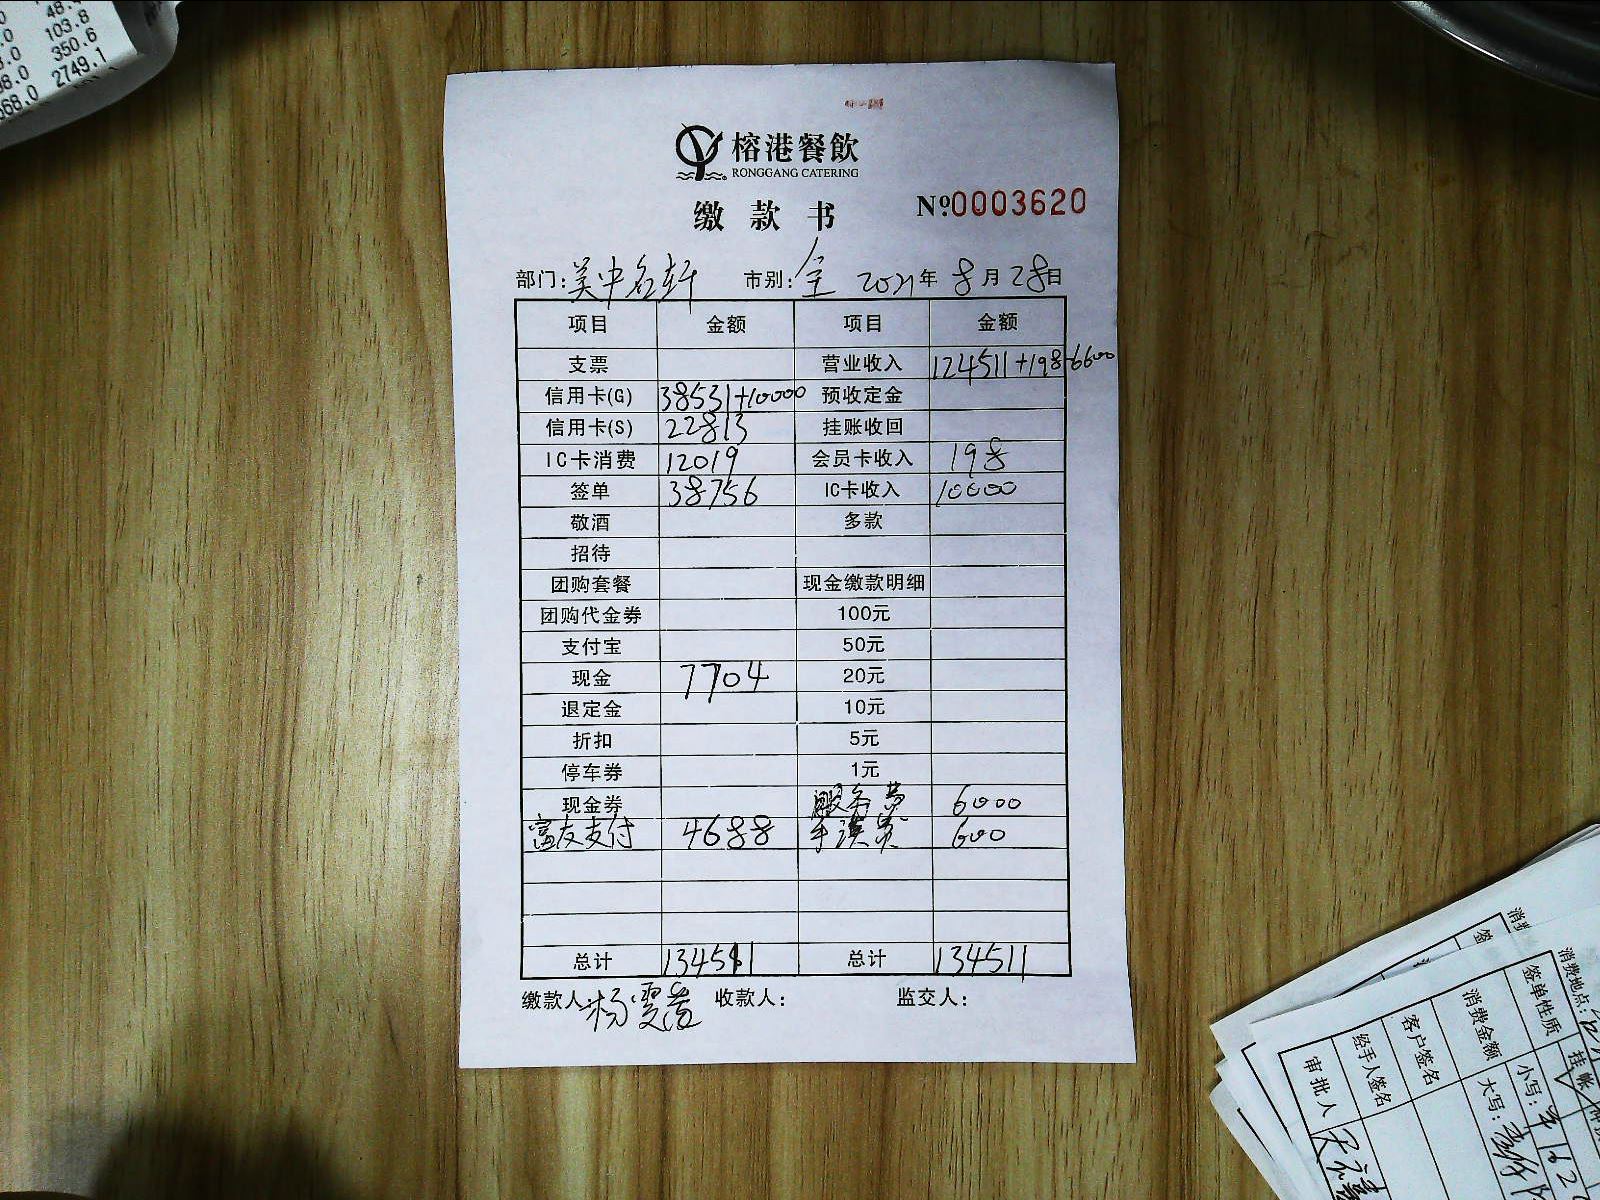 48.
103.8
350.6
2749.1
568.0
榕港餐飲
RONGGANG CATERING
缴款书 №0003620
部门:美中名轩 市别:全 2021年8月28日
项目 金额 项目 金额
支票 营业收入 124511+198-6600
信用卡(G) 38531+10000 预收定金
信用卡(S) 22813 挂账收回
IC卡消费 12019 会员卡收入 198
签单 38756 IC卡收入 10000
敬酒 多款
招待
团购套餐 现金缴款明细
团购代金券 100元
支付宝 50元
现金 7704 20元
退定金 10元
折扣 5元
停车券 1元
现金券 服务费 6000
富友支付 4688 手续费 600
总计 134511 总计 134511
缴款人: 杨雯 收款人: 监交人:
消费地点:
签单性质 挂帐
消费金额 小写: 大写:
客户签名
经手人签名
审批人